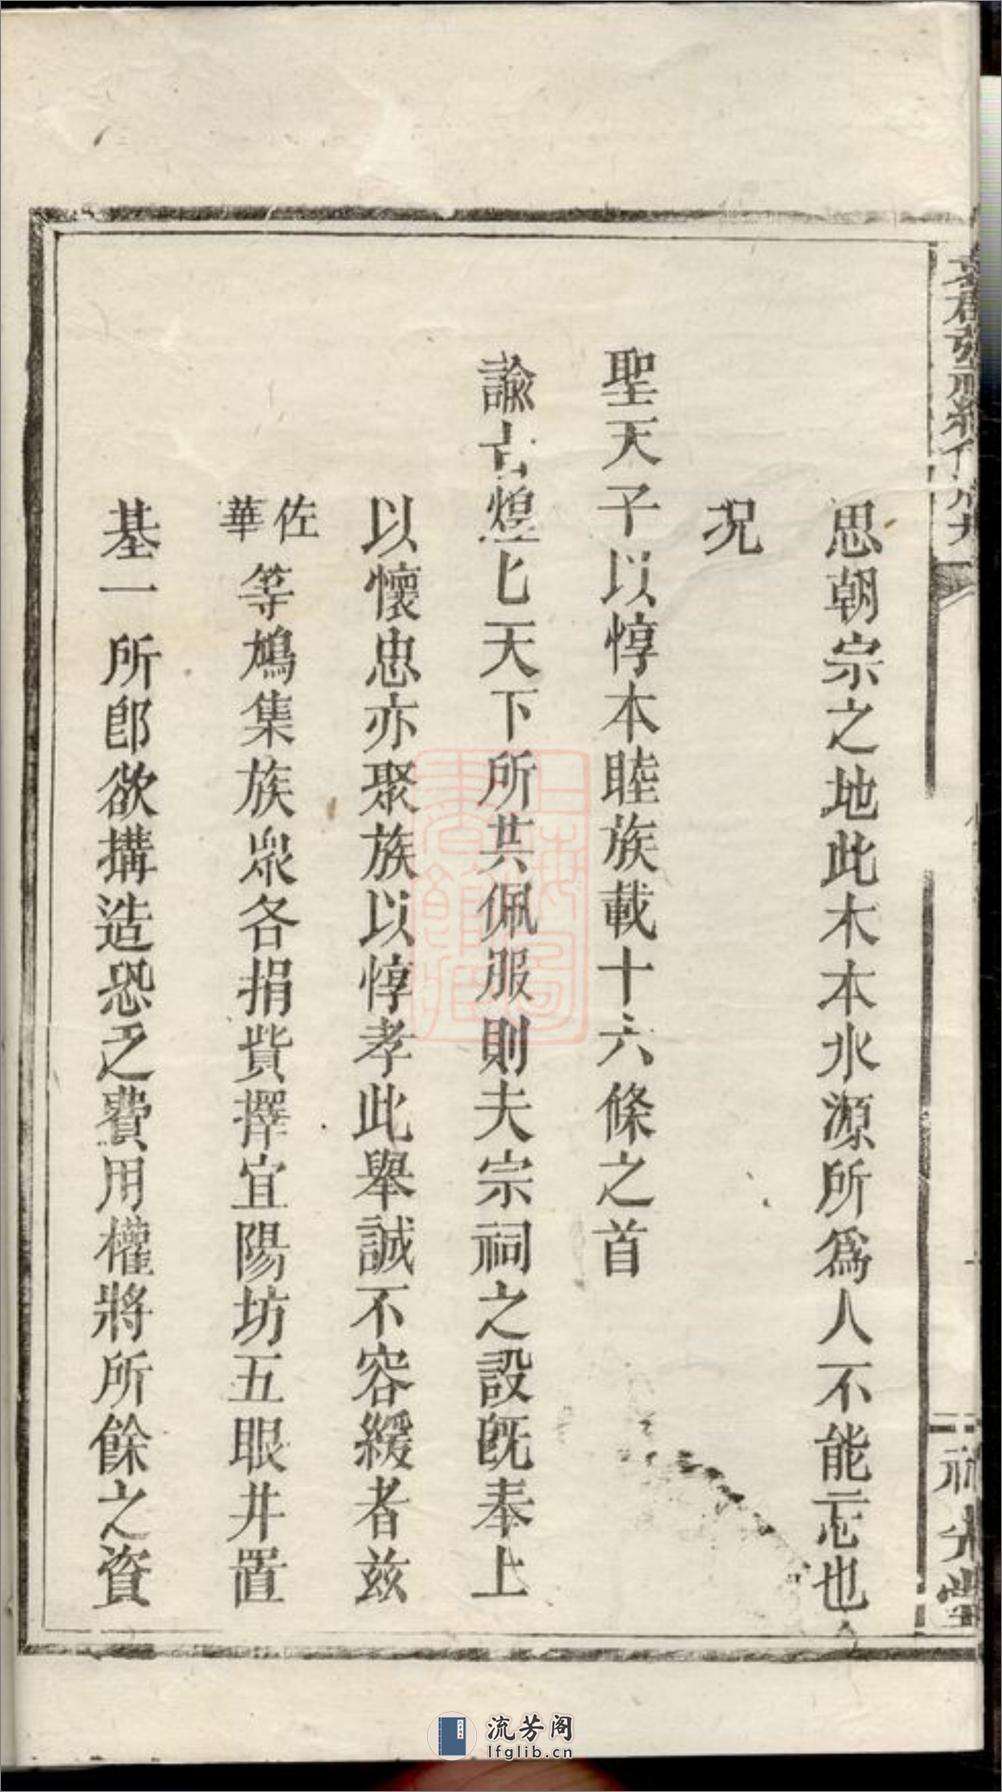 思朝宗之地此木本水源所爲人不能忘也
况
聖天子以惇本睦族載十六條之首
諭言煌煌天下所共佩服則夫宗祠之設旣奉上
以懷忠亦聚族以惇孝此舉誠不容緩者兹
佐華等鳩集族衆各捐貲擇宜陽坊五眼井置
基一所卽欲搆造恐乏費用權將所餘之資
上海圖書館藏
流芳阁
lfglib.cn